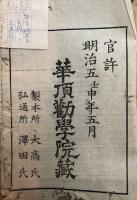 官許
明治五壬申年五月
華頂勸學院藏
製本所 大髙氏
弘通所 澤田氏